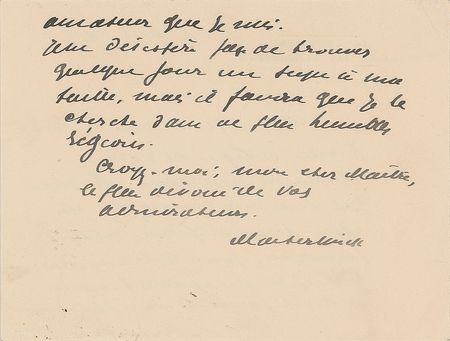 amateur que je suis.
Je ne désespère pas de trouver
quelque jour un sujet à ma
taille, mais il faudra que je le
cherche dans de plus humbles
régions.
Croyez-moi, mon cher Maître,
le plus dévoué de vos
admirateurs.
Maeterlinck